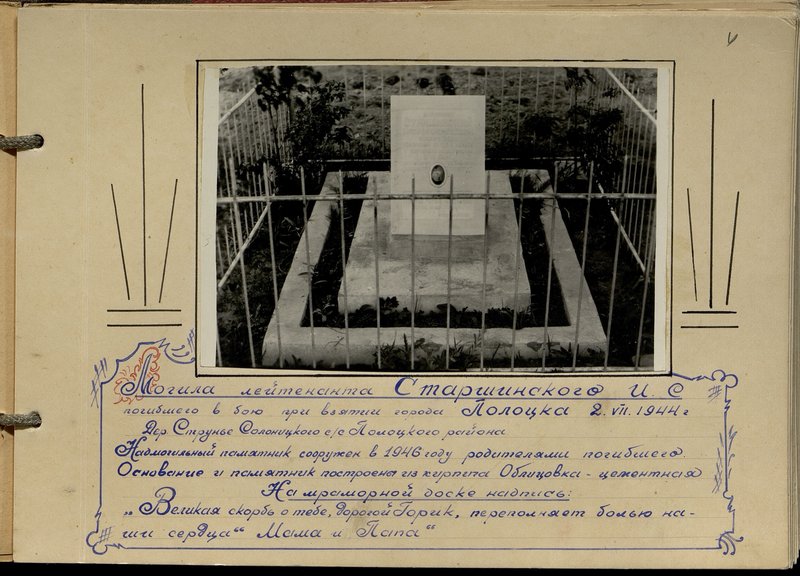 Могила лейтенанта Старшинского И. С
погибшего в бою при взятии города Полоцка 2. VII. 1944 г
Дер. Струнье Солоницкого с/с Полоцкого района
Надмогильный памятник сооружен в 1946 году родителями погибшего.
Основание и памятник построены из кирпича Облицовка - цементная
На мраморной доске надпись:
„Великая скорбь о тебе, дорогой Горик, переполняет болью на-
ши сердца" Мама и Папа"